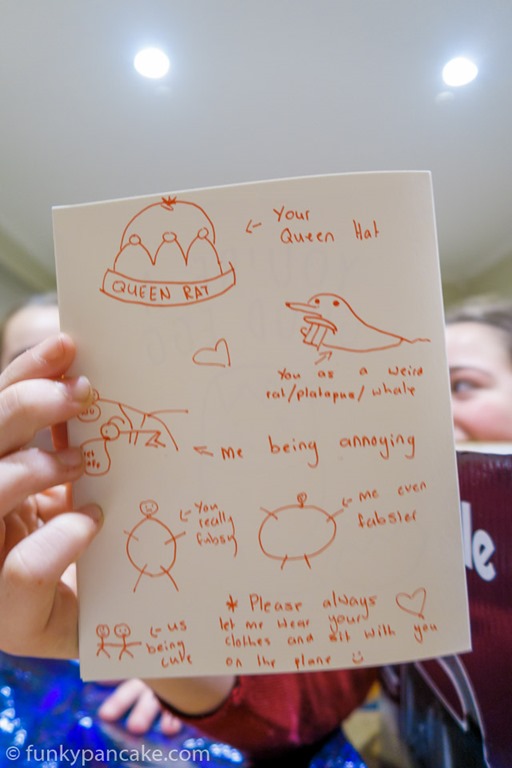 Your
Queen Hat
QUEEN RAT
You as a weird
rat/platapus/whale
me being annoying
You
really
fubsy
me even
fubsier
us
being
cute
* Please always
let me wear your
clothes and sit with you
on the plane
© funkypancake.com